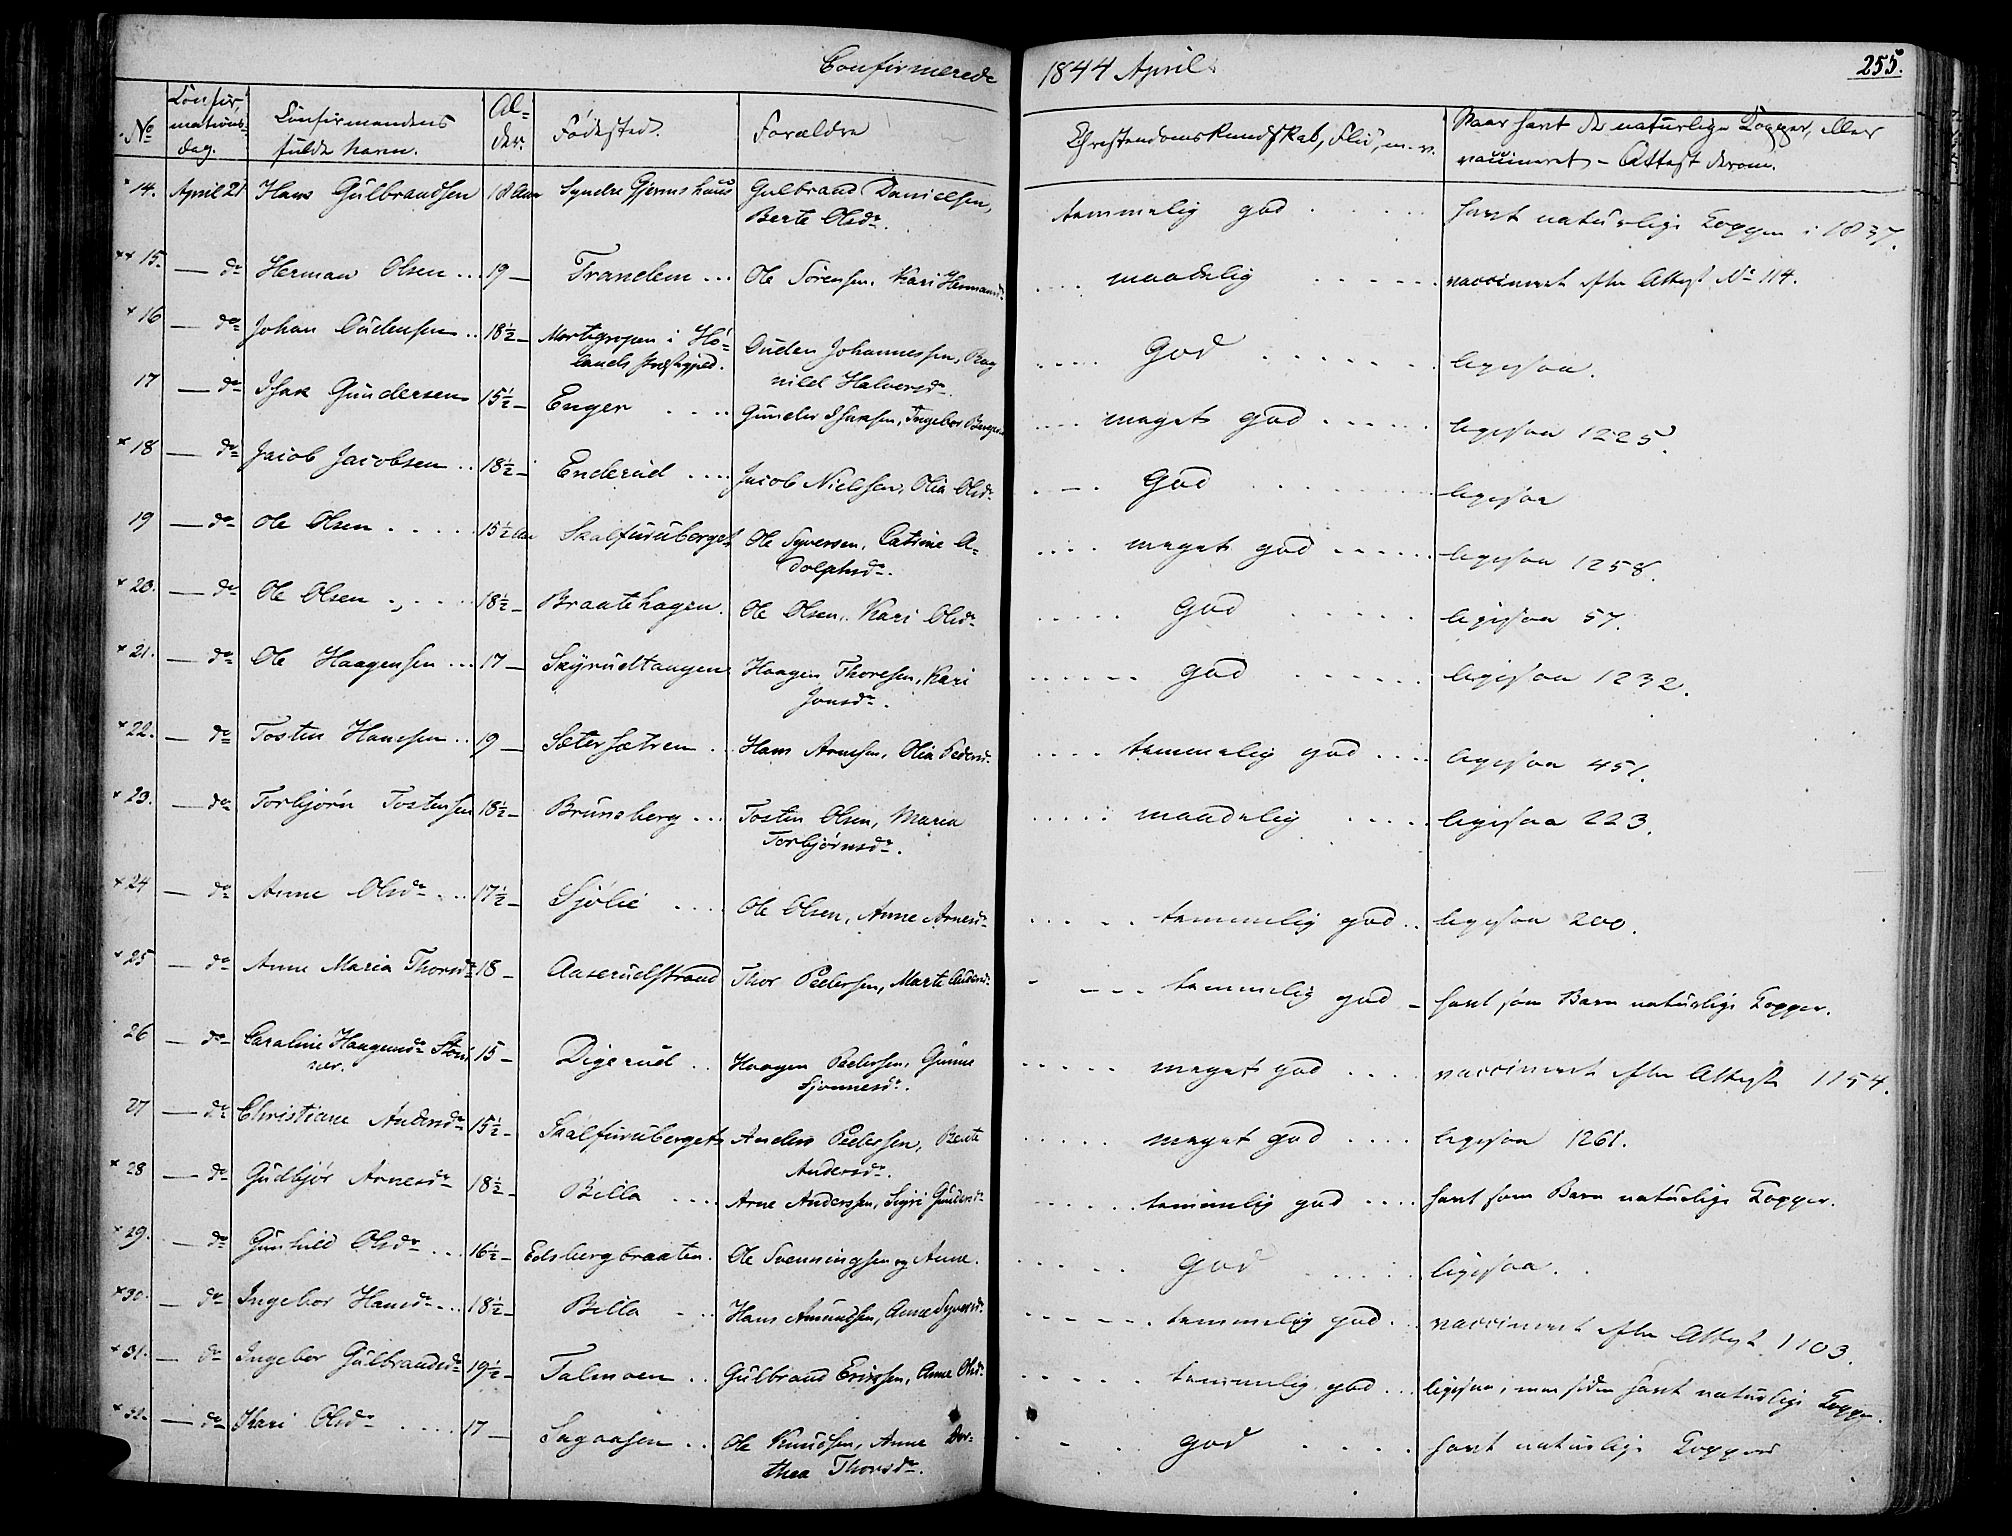 Confirmerede 1844 April. 255.
No Confirmationsdag. Confirmandens fulde Navn. Alder. Fødested. Forældre Christendomskundskab, Flid, m. v. Naar havt de naturlige Kopper, eller vaccineret - Attest derom.
* 14. April 21 Hans Gulbrandsen 18 Aar Syndre Gjerrnshuus Gulbrand Danielsen, temmelig god havt naturlige Kopper i 1837.
Berte Olsdr.
** 15. — do Herman Olsen 19 — Trandem Ole Sørensen, Kari Hermansdr maadelig vaccineret efter Attest No 114.
* 16 — do Johan Oudensen 18½ — Mortsgropen i Hø-
lands Præstegjeld. Ouden Johannessen, Rag
nild Halvorsdr. God ligesaa.
17 — do Isak Gundersen 15½ — Enger Gunder Isaksen, Ingebor meget god ligesaa 1225.
* 18 — do Jacob Jacobsen 18½ — Enderud Jacob Nielssen, Olia Olsdr God ligesaa
19 — do Ole Olsen 15½ Aar Skalfuruberget Ole Syversen, Catrine A-
dolphsdr. meget god ligesaa 1258.
* 20. — do Ole Olsen 18½ — Braatehagen. Ole Olsen, Kari Olsdr God ligesaa 57.
* 21. — do Ole Haagensen 17 — Skyrudtangen Haagen Thoresen, Kari
Jonsdr. god ligesaa 1232.
* 22. — do Tosten Hansen 19 — Sætersætren Hans Arnesen, Olia Pedersdr temmelig god ligesaa 451.
* 23. — do Torbjørn Tostensen 18½ — Brunsberg Tosten Olsen, Maria
Torbjørnsdr. maadelig ligesaa 223.
* 24 — do Anne Olsdr 17½ — Sjølie Ole Olsen, Anne Arnesdr temmelig god ligesaa 200.
* 25 — do Anne Maria Thorsdr 18 — Aaserudstrand Thor Pedersen, Marte Andersdr. temmelig god havt som Barn naturlige Kopper.
26 — do Caroline Haagensdr 15 — Digerud Haagen Pedersen, Gunne meget god vaccineret efter Attest 1154.
27 — do Christiane Andersdr 15½ — Skalfuruberget Anders Pedersen, Berte
Andersdr. meget god ligesaa 1261.
* 28 — do Gudbjør Arnesdr 18½ — Billa Arne Anderssen, Sigri Gundersdr temmelig god havt som Barn naturlige Kopper.
* 29. — do Gunhild Olsdr 16½ — Edsbergbraaten. Ole Svenningsen og Anne. God ligesaa.
* 30. — do Ingebor Hansdr 18½ — Billa Hans Amundsen, Anne Syversdr. temmelig god vaccineret efter Attest 1103.
* 31. — do Ingebor Gulbrandsdr 19½ — Talmoen Gulbrand Ericssen, Anne Olsdr. temmelig god ligesaa, men siden havt naturlige Kopper.
* 32. — do Kari Olsdr 17 — Sagaasen Ole Knudsen, Anne Dor-
thea Thorsdr. god havt naturlige Kopper